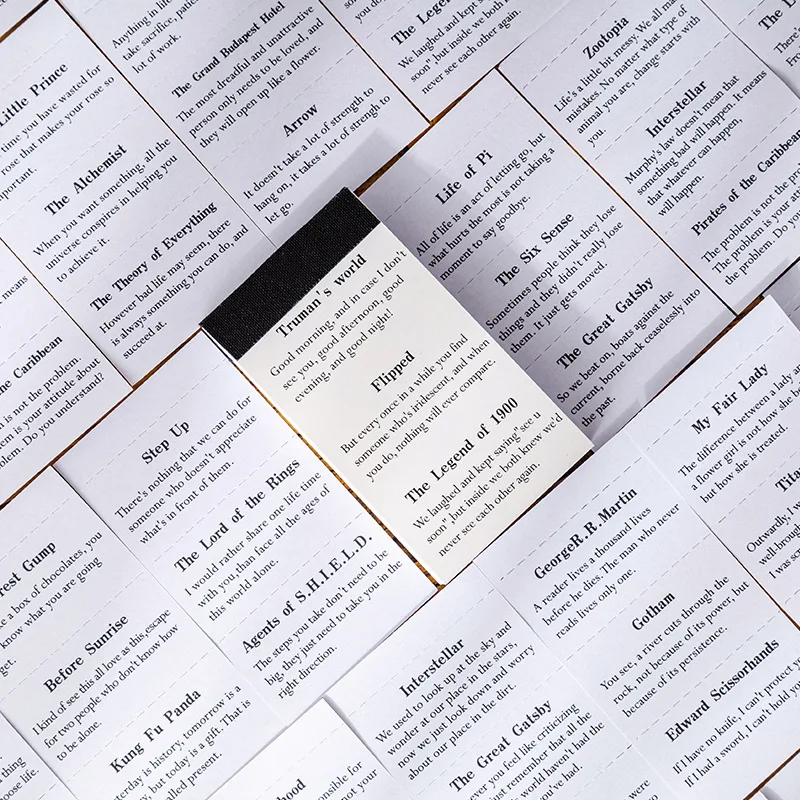 Anything in lif
take sacrifice, patie
lot of work.
The Grand Budapest Hotel
The most dreadful and unattractive
person only needs to be loved, and
they will open up like a flower.
Arrow
It doesn't take a lot of strength to
hang on, it takes a lot of strength to
let go.
The Legen
We laughed and kept s
soon", but inside we both
never see each other again.
Zootopia
Life's a little bit messy. We all mak
mistakes. No matter what type of
animal you are, change starts with
you.
Interstellar
Murphy's law doesn't mean that
something bad will happen. It means
that whatever can happen,
will happen.
Pirates of the Caribbean
The problem is not the pro
The problem is your
the problem. Do you
Little Prince
time you have wasted for
rose that makes your rose so
mportant.
The Alchemist
When you want something, all the
universe conspires in helping you
to achieve it.
The Theory of Everything
However bad life may seem, there
is always something you can do, and
succeed at.
Life of Pi
All of life is an act of letting go, but
what hurts the most is not taking a
moment to say goodbye.
The Six Sense
Sometimes people think they lose
things and they didn't really lose
them. It just gets moved.
The Great Gatsby
So we beat on, boats against the
current, borne back ceaselessly into
the past.
Truman's world
Good morning, and in case I don't
see you, good afternoon, good
evening, and good night!
Flipped
But every once in a while you find
someone who's iridescent, and when
you do, nothing will ever compare.
The Legend of 1900
We laughed and kept saying"see u
soon",but inside we both knew we'd
never see each other again.
means
he Caribbean
m is not the problem.
lem is your attitude about
oblem. Do you understand?
Step Up
There's nothing that we can do for
someone who doesn't appreciate
what's in front of them.
The Lord of the Rings
I would rather share one life time
with you,than face all the ages of
this world alone.
Agents of S.H.I.E.L.D.
The steps you take don't need to be
big, they just need to take you in the
right direction.
rest Gump
e a box of chocolates, you
know what you are going
get.
Before Sunrise
I kind of see this all love as this,escape
for two people who don't know how
to be alone.
Kung Fu Panda
esterday is history, tomorrow is a
y, but today is a gift. That is
alled present.
My Fair Lady
The difference between a lady an
a flower girl is not how she be
but how she is treated.
Tita
Outwardly, I w
well broug
I was sc
GeorgeR.R.Martin
A reader lives a thousand lives
before he dies. The man who never
reads lives only one.
Gotham
You see, a river cuts through the
rock, not because of its power, but
because of its persistence.
Edward Scissorhands
If I have no knife, I can't protect y
If I had a sword, I can't hold yo
Interstellar
We used to look up at the sky and
wonder at our place in the stars,
now we just look down and worry
about our place in the dirt.
The Great Gatsby
ever you feel like criticizing
just remember that all the
s world haven't had the
you've had.
hood
ponsible for
not your
thing
oose life.
were